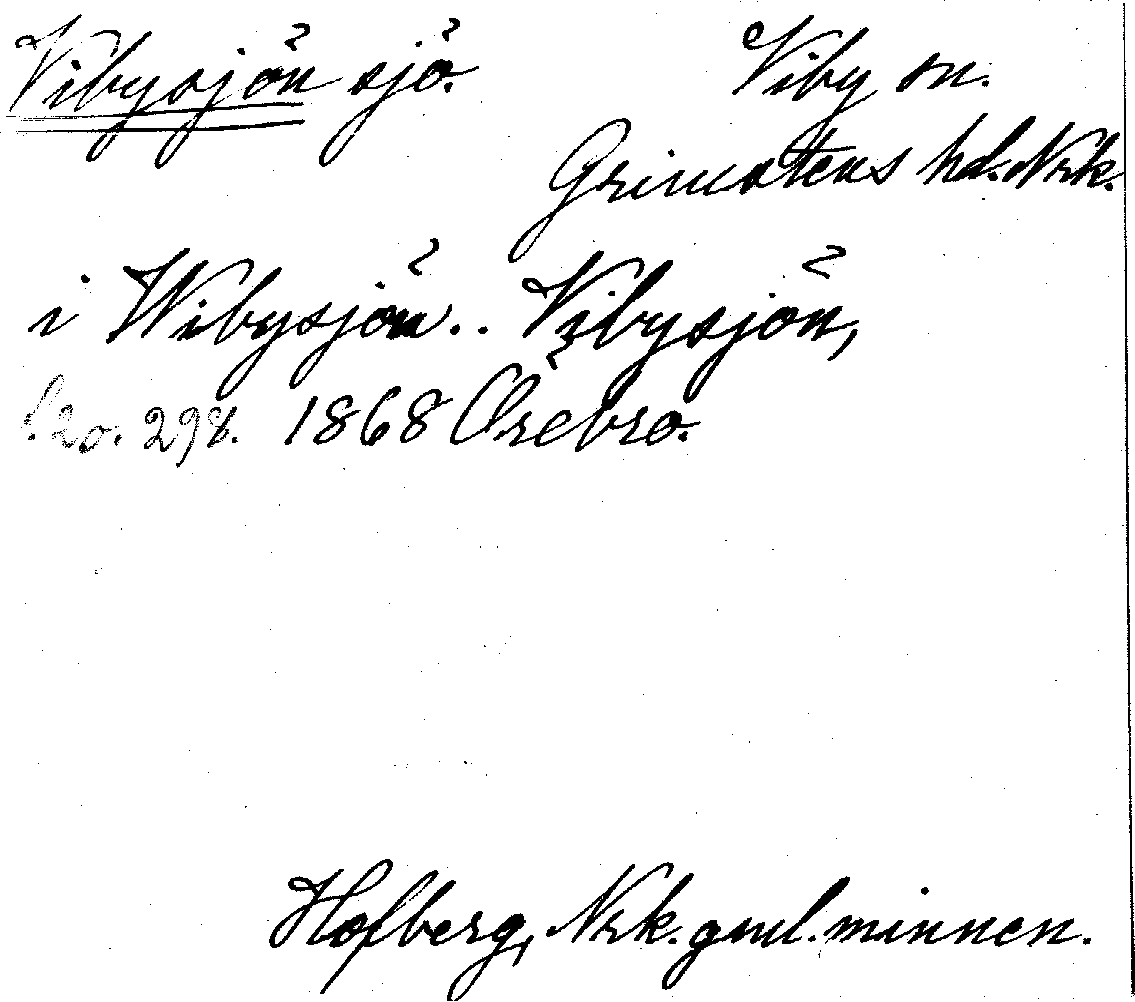 Vibysjön sjö. Viby sn.
Grimstens hd. Nrk.
i Wibysjön.. Vibysjön,
s. 20. 298. 1868 Örebro.
Hofberg, Nrk. gml. minnen.